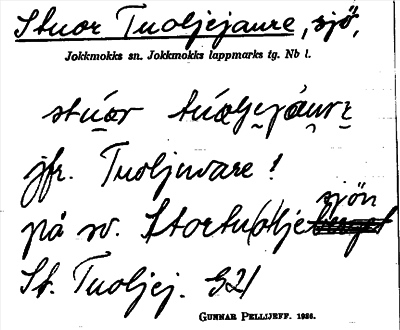 Stuor Tuoljejaure, sjö,
Jokkmokks sn. Jokkmokks lappmarks tg. Nb l.
stúor túoljejáurɛ
jfr. Tuoljuvare!
sjön
på sv. Stortu(o)lje
St. Tuoljej. 321
GUNNAR PELLIJEFF. 1936.